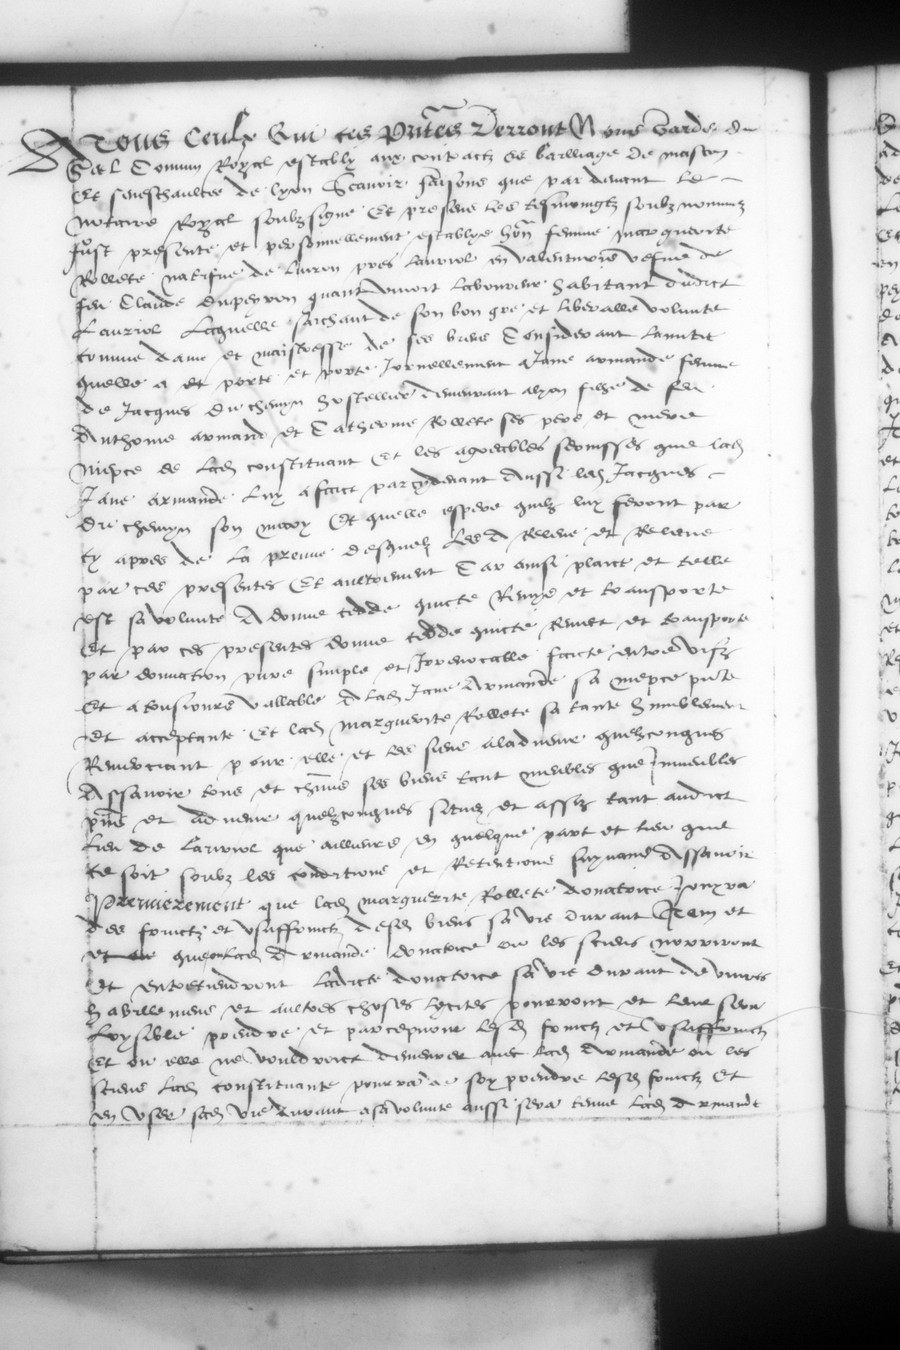 A Tous Ceulx Qui ces Pntes Verront Nous garde du
Seel Commun Royal estably aux contractz es bailliage de mascon
Et seneschaulcee de lyon Scavoir faisons que par devant le
notaire Royal soubzsigne Et presens les tesmoingtz soubz nommez
fust presente et personnellement establye hon femme marguerite
Rollete natifve de livron pres lauriol en valentinois vefve de
feu Claude dupeyron quant vivoit laboureur habitant dudict
Lauriol Laquelle saichant de son bon gre et liberalle volunte
comme dame et maistresse de ses biens Considerant lamitie
quelle a et porte et porte Jornellement a Jane armande femme
de Jacques du chemyn hostellier demeurant a lyon fille de feu
Anthoine armand et Catherine Rollete ses pere et mere
niepce de lad constituant Et les agreables services que lad
Jane armande luy a faict par cydevant Aussi led Jacques
du chemyn son mary Et quelle espere quilz luy feront par
cy apres de la preuve desquelz les A Releve et Relieve
par ces presentes Et aultrement Car ainsi plaict et telle
est sa volunte A donne cedde quicte Remys et transporte
Et par ces presentes donne cedde quicte Remet et transporte
par donnation pure simple et Irrevocable faicte entre vifz
Et a tousiours vallable A lad Jane Armande sa niepce pnte
et acceptante Et lad marguerite Rollete sa tante humblement
Remerciant pour elle et les siens aladvenir quelzconques
Assavoir tous et chms ses biens tant meubles que Immeubles
pns et advenir quelzconques situez et assiz tant audict
lieu de Lauriol que ailleurs en quelque part et lieu que
ce soit soubz les conditions et Retentions suyvans Assavoir
Premierement que lad marguerite Rollete donatrice Jouyra
des fruictz et usaffruictz desd biens sa vie durant Item et
et que lad Armande donatrice ou les sciens nourriront
Et entretiendront ladicte donatrice sa vie durant de vivres
habillemens et aultres choses licites pourront et leur sera
loysible prendre et parcepvoir lesd fruictz et usaffruictz
Et ou elle ne vouldroict demeurer avec lad Armande ou les
sciens lad constituante pourra a soy prendre lesd fruictz Et
en user sad vie durant a sa volunte aussi sera tenue lad Armande